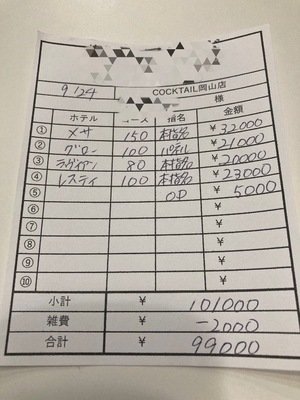 COCKTAIL岡山店
9/24 様
ホテル コース 指名 金額
① メサ 150 本指名 ¥32000
② グロー 100 パネル ¥21000
③ ラヴィアン 80 本指名 ¥20000
④ レスティ 100 本指名 ¥23000
⑤ OP ¥5000
⑥ ¥
⑦ ¥
⑧ ¥
⑨ ¥
⑩ ¥
小計 ¥ 101000
雑費 ¥ -2000
合計 ¥ 99000